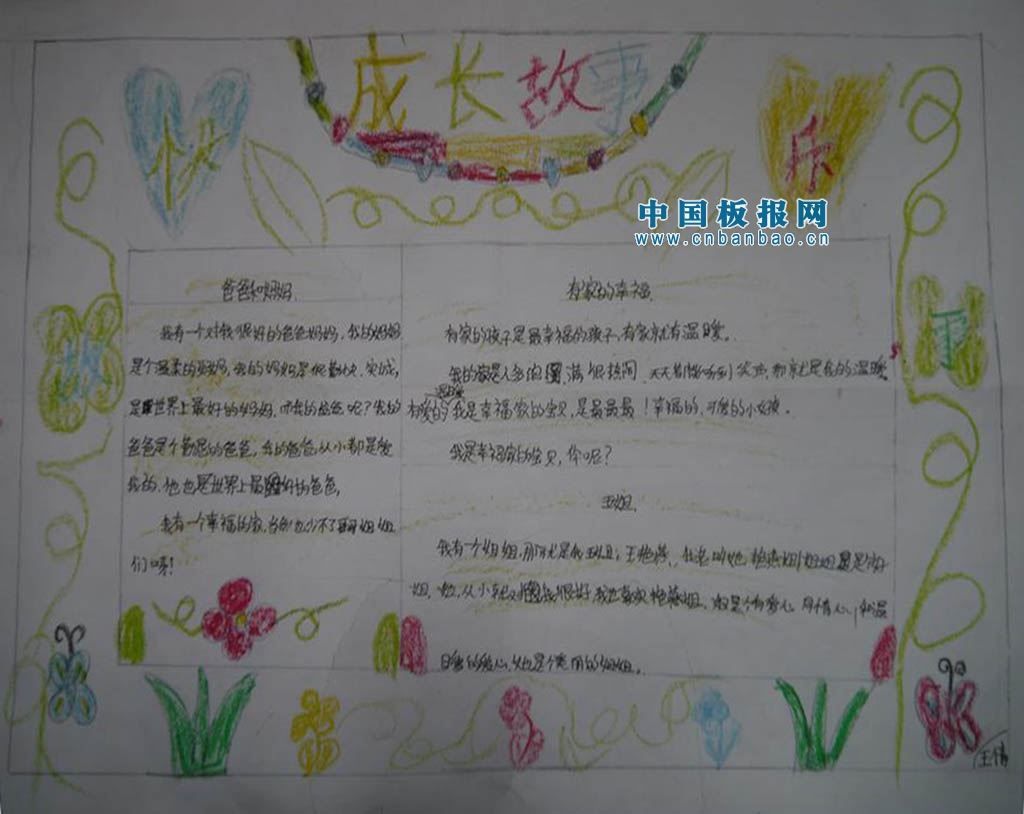 成长故事
快
乐
中国板报网
www.cnbanbao.cn
爸爸和妈妈
我有一个对我很好的爸爸妈妈,我的妈妈
是个温柔的妈妈,我的妈妈是很勤快、实诚,
是世界上最好的妈妈,而我的爸爸呢?我的
爸爸是个的爸爸,我的爸爸从小都是爱
我的,他也是世界上最好的爸爸,
我有一个幸福的家,当然也少不了姐姐
们呀!
有家的幸福
有家的孩子是最幸福的孩子,有家就有温暖。
我的家是人多很热闹,天天都能听到笑声,那就是我的温暖
温暖
有爱的我是幸福家的宝贝,是最最最!幸福的,可爱的小女孩。
我是幸福家的宝贝,你呢?
姐
我有一个姐姐,那就是我姐:王艳燕,姐姐是好
姐,她从小就对我很好,我也喜欢姐,她是个有爱心、有情心、和温
的爱心,她也是个善良的姐姐。
王倩